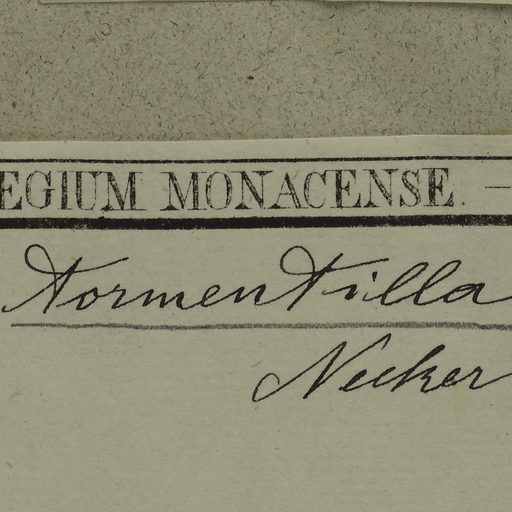 EGIUM MONACENSE. —
Tormentilla
Necker